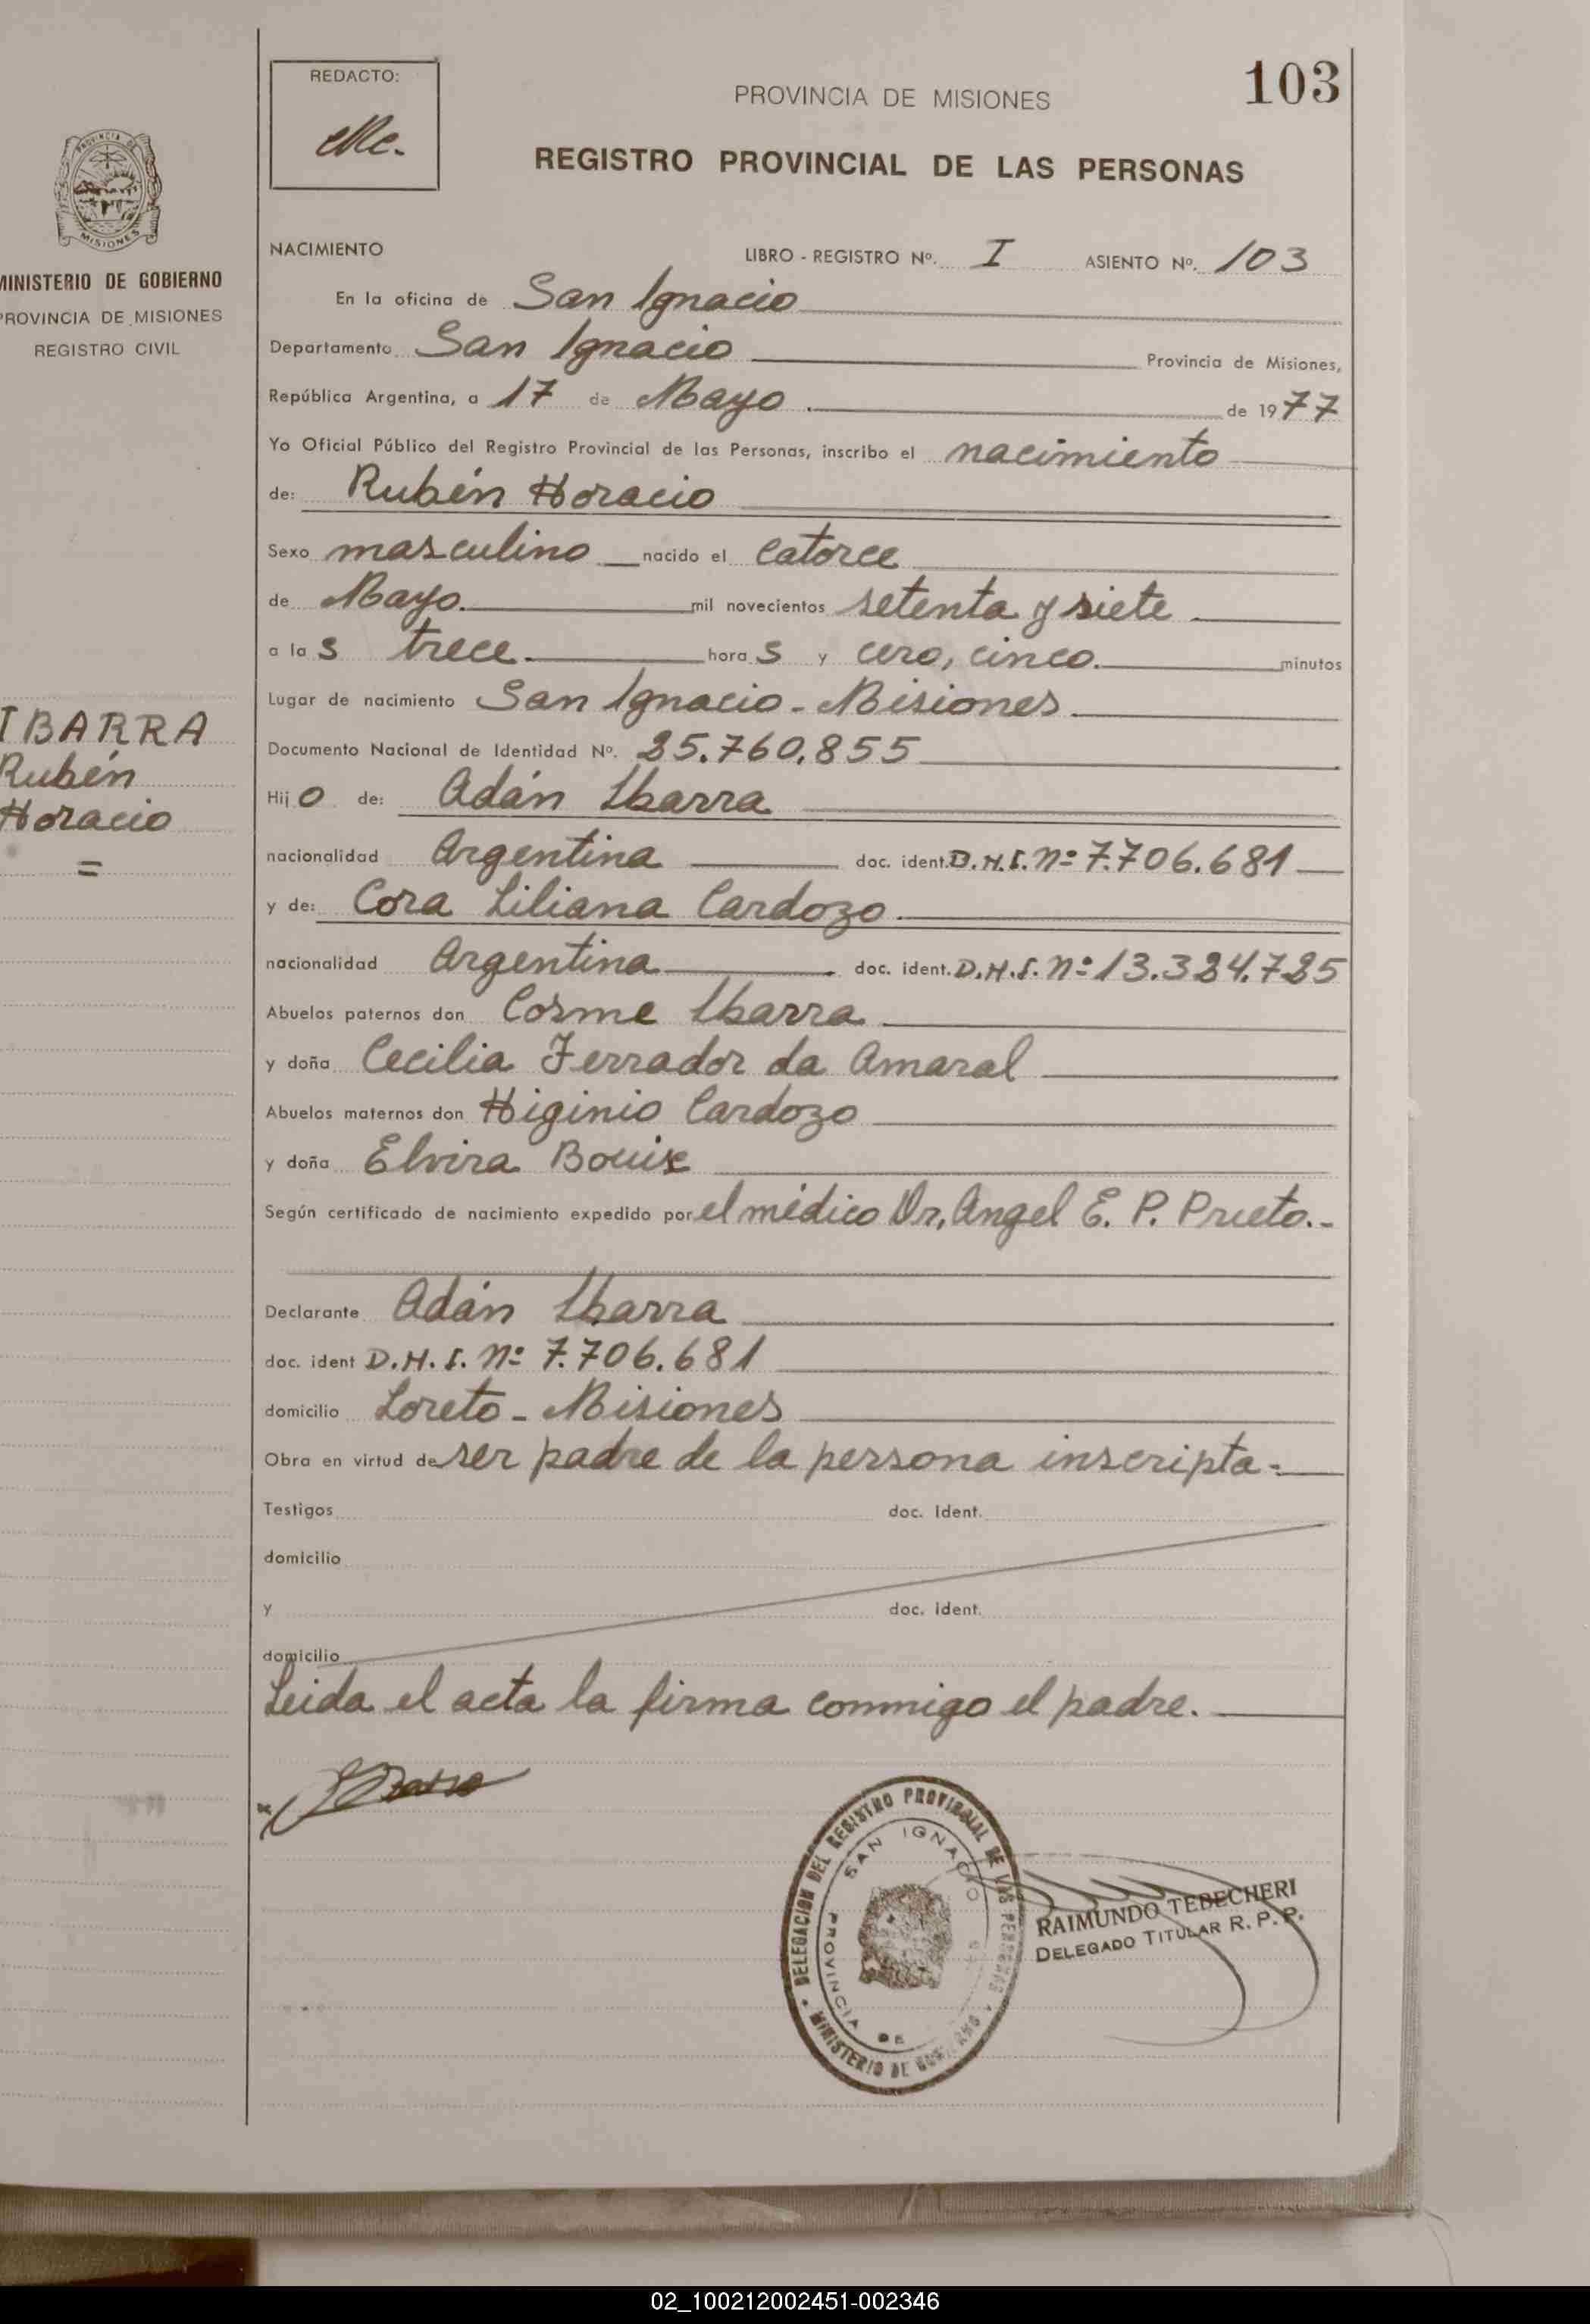 REDACTO:
PROVINCIA DE MISIONES
103
REGISTRO PROVINCIAL DE LAS PERSONAS
PROVINCIA DE
MISIONES
MINISTERIO DE GOBIERNO
PROVINCIA DE MISIONES
REGISTRO CIVIL
IBARRA
Rubén
Horacio
=
NACIMIENTO LIBRO - REGISTRO Nº. I ASIENTO Nº. 103
En la oficina de San Ignacio
Departamento San Ignacio Provincia de Misiones,
República Argentina, a 17 de Mayo de 1977
Yo Oficial Público del Registro Provincial de las Personas, inscribo el nacimiento
de: Rubén Horacio
Sexo masculino nacido el catorce
de Mayo. mil novecientos setenta y siete
a las trece. horas y cero, cinco. minutos
Lugar de nacimiento San Ignacio - Misiones
Documento Nacional de Identidad Nº. 25.760.855
Hijo de: Adán Ibarra
nacionalidad Argentina doc. ident. D.N.I. nº 7.706.681
y de: Cora Liliana Cardozo
nacionalidad Argentina doc. ident. D.N.I. nº 13.324.725
Abuelos paternos don Cosme Ibarra
y doña Cecilia Ferrador da Amaral
Abuelos maternos don Higinio Cardozo
y doña Elvira
Según certificado de nacimiento expedido por el médico Dr, Angel E. P. Prieto.-
Declarante Adán Ibarra
doc. ident D.N.I. nº 7.706.681
domicilio Loreto - Misiones
Obra en virtud de ser padre de la persona inscripta.-
Testigos doc. ident.
domicilio
y doc. ident.
domicilio
Leida el acta la firma conmigo el padre.
DELEGACION DEL REGISTRO PROVINCIAL DE LAS PERSONAS
MINISTERIO DE GOBIERNO
SAN IGNACIO
PROVINCIA DE
RAIMUNDO TEBECHERI
DELEGADO TITULAR R. P. P.
02_100212002451-002346